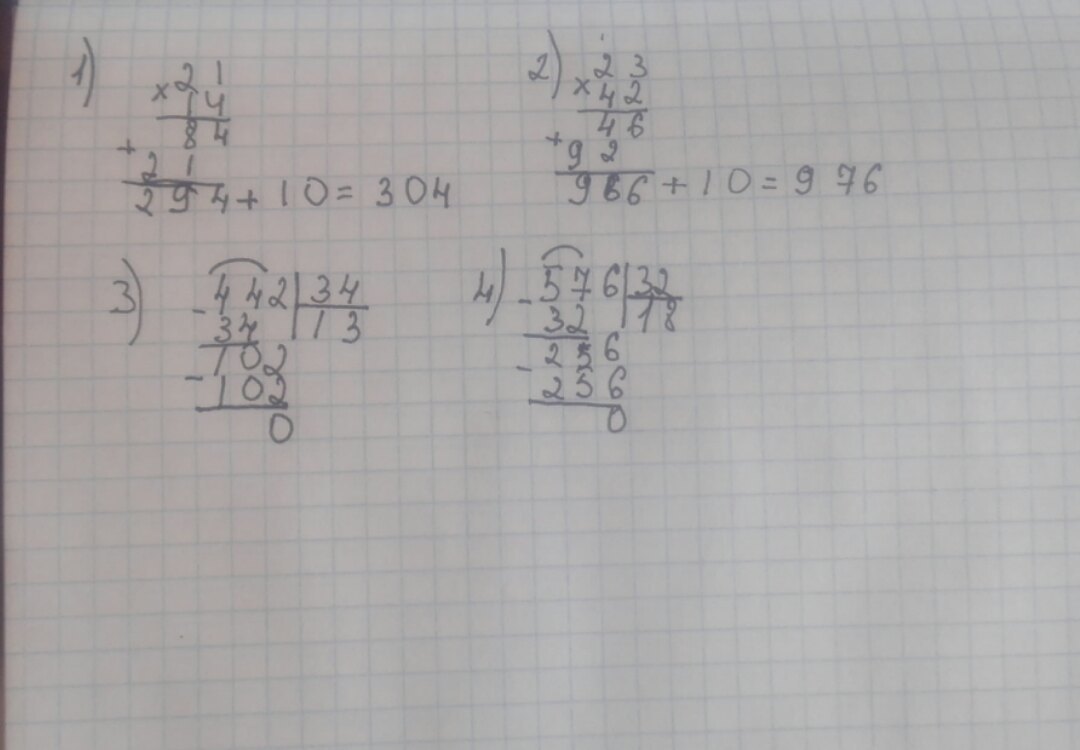 1) × 21
14
84
+ 21
294 + 10 = 304
2) × 23
42
46
+ 92
966 + 10 = 976
3) - 442 | 34
34 | 13
102
- 102
0
4) - 576 | 32
32 | 18
- 256
256
0